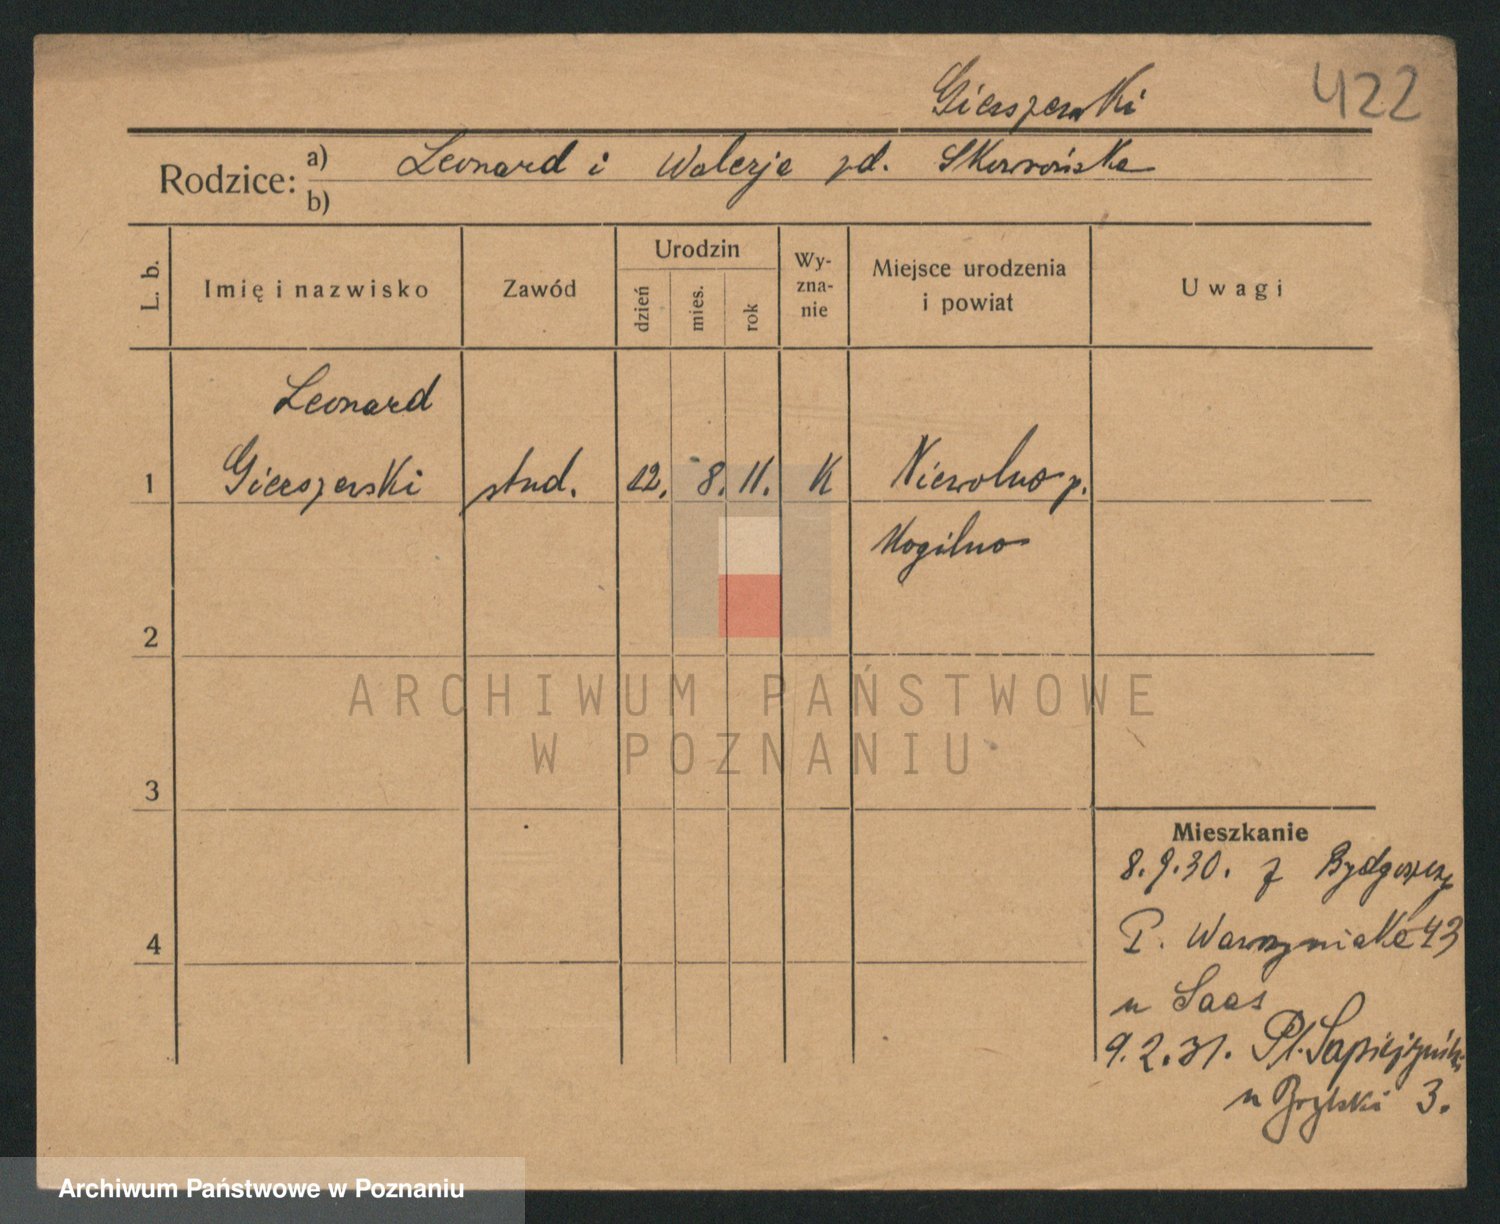 Gierszewski 422
Rodzice: a) Leonard i Walerja zd. Skowrońska
b)
L. b. Imię i nazwisko Zawód Urodzin dzień mies. rok Wy-zna-nie Miejsce urodzenia i powiat Uwagi
Leonard
1 Gierszewski stud. 12. 8. 11. K Niewolno p.
Mogilno
2
ARCHIWUM PAŃSTWOWE
W POZNANIU
3
4
Mieszkanie
8.9.30. z Bydgoszczy
P. Wawrzyniaka 43
u Saas
9.2.31. Pl. Sapieżyński
u 3.
Archiwum Państwowe w Poznaniu